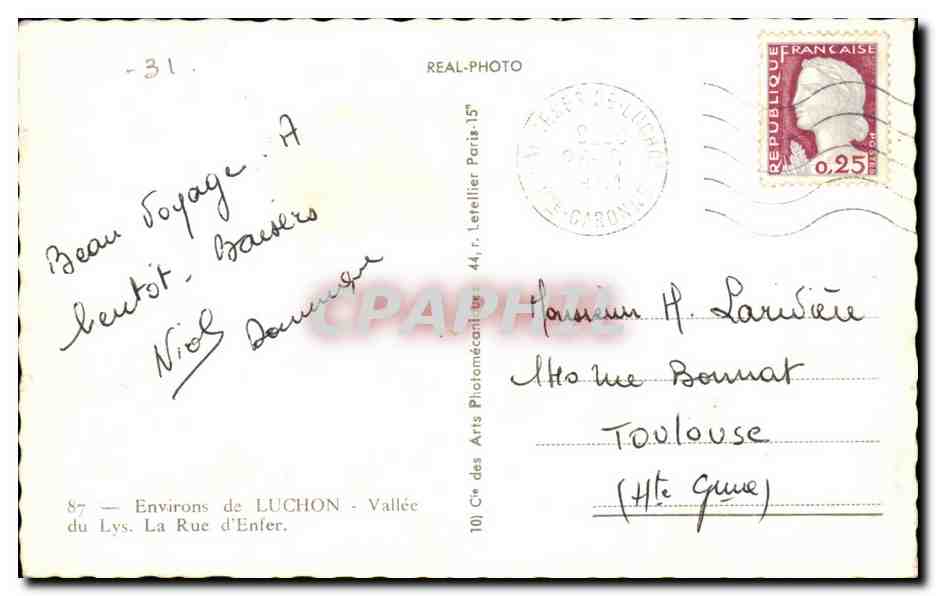 - 31.
REAL-PHOTO
Beau Voyage. A
bientôt - Baisers
Dominique
87 — Environs de LUCHON - Vallée
du Lys. La Rue d'Enfer.
10) Cie des Arts Photomécaniques 44, r. Letellier Paris-15e
DE-LUCHON
GARONNE
REPUBLIQUE FRANÇAISE
POSTES
0,25
Monsieur H. Larivière
rue Bonnat
TOULOUSE
(Hte Gnne)
CPAPHIL